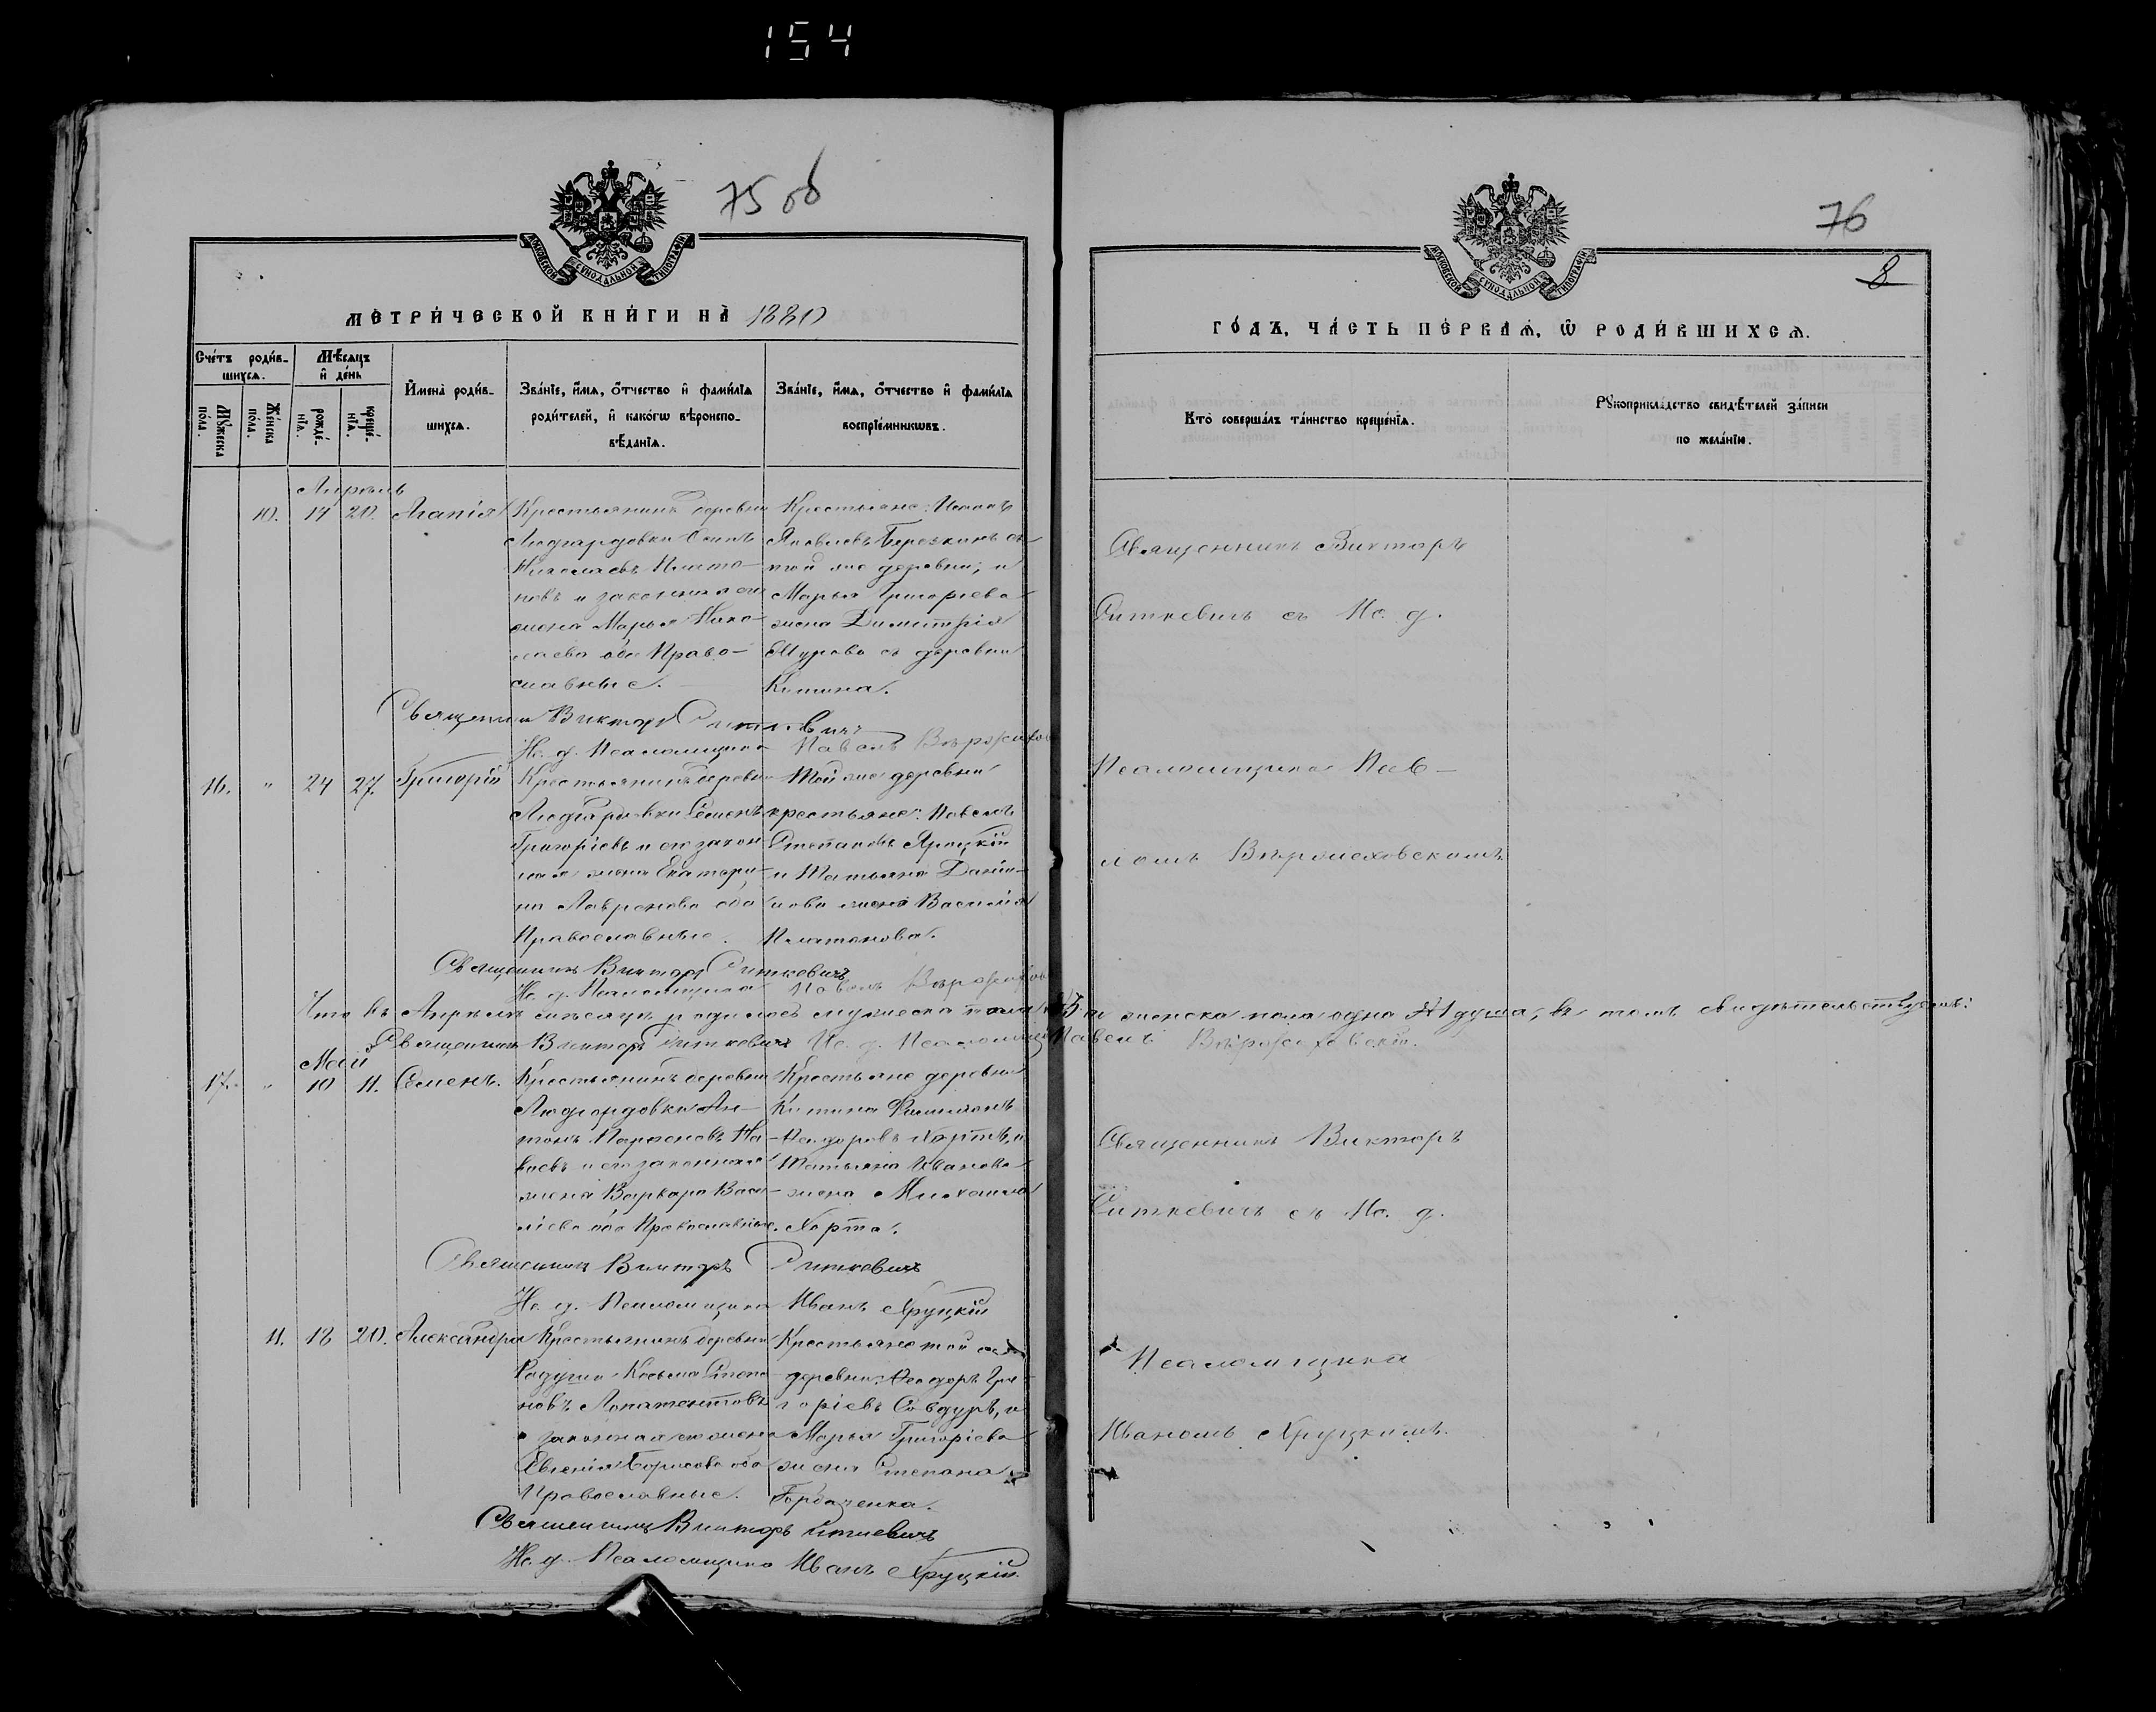 154
75 об
76
8
МОСКОВСКОЙ СѴНОДАЛЬНОЙ ТИПОГРАФІИ
МОСКОВСКОЙ СѴНОДАЛЬНОЙ ТИПОГРАФІИ
МЕТРИ́ЧЕСКОЙ КНИ́ГИ НА̀ 1880
ГО́ДЪ, ЧА́СТЬ ПЕ́РВАѦ, Ѿ РОДИ́ВШИХСѦ.
Сче́тъ роди́в-
шихсѧ.
Мѣ́сѧцъ
и҆ де́нь
Мꙋ́жеска по́ла.
Же́нска по́ла.
рожде́-
нїѧ.
креще́-
нїѧ.
И҆мена̀ роди́в-
шихсѧ.
Зва́нїе, и҆́мѧ, ѻ҆́тчество и҆ фами́лїѧ
роди́телей, и҆ како́гѡ вѣроиспо-
вѣ́данїѧ.
Зва́нїе, и҆́мѧ, ѻ҆́тчество и҆ фами́лїѧ
воспрїе́мникѡвъ.
Кто̀ соверша́лъ та́инство креще́нїѧ.
Рꙋкоприкла́дство свидѣ́телей за́писи
по жела́нїю.
Апрѣль
10. 14 20. Агапія
Крестьянинъ деревни
Людгардовки Осипъ
Николаевъ Плато-
новъ и законная его
жена Марья Нико-
лаева оба Право-
славные.
Крестьяне: Исаакъ
Яковлевъ Березкинъ съ
той же деревни, и
Марья Григорьева
жена Димитрія
Мурова съ деревни
Китина.
Священникъ Викторъ
Ситкевичъ съ Ис. д.
Священникъ Викторъ Ситкевичъ
Ис. д. Псаломщика Павелъ
16. " 24 27. Григорій
Крестьянинъ деревни
Людгардовки Семенъ
Григорьевъ и его закон-
ная жена Екатери-
на Лавренова оба
Православные.
Той же деревни
крестьяне: Павелъ
Степановъ Яроцкій
и Татьяна Дани-
лова жена Василія
Платонова.
Псаломщика Пав-
ломъ
Священникъ Викторъ Ситкевичъ
Ис. д. Псаломщика Павелъ
Что въ Апрѣлѣ мѣсяцѣ родилось мужеска пола и женска пола одна /1/ душа, въ томъ свидѣтельствуемъ:
Священникъ Викторъ Ситкевичъ Ис. д. Псаломщика Павелъ
Май
17. " 10 11. Семенъ.
Крестьянинъ деревни
Людгардовки Ан-
тонъ Парфеновъ На-
и его законная
жена Варвара Васи-
ліева оба Православные.
Крестьяне деревни
Китина Филимонъ
Ѳедоровъ Хортъ, и
Татьяна Иванова
жена Михаила
Хорта.
Священникъ Викторъ
Ситкевичъ съ Ис. д.
Священникъ Викторъ Ситкевичъ
Ис. д. Псаломщика Иванъ Хруцкій
11. 18 20. Александра
Крестьянинъ деревни
Радуги Косьма Степа-
новъ
и законная его жена
Евгенія Борисова оба
Православные.
Крестьяне той же
деревни: Ѳеодоръ Гри-
горіевъ и
Марья Григоріева
жена Степана
Горбаченка.
Псаломщика
Иваномъ Хруцкимъ.
Священникъ Викторъ Ситкевичъ
Ис. д. Псаломщика Иванъ Хруцкій